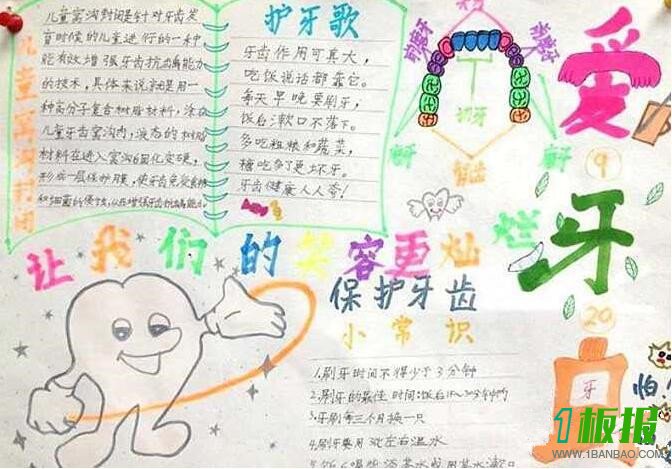 儿童窝沟封闭
儿童窝沟封闭是针对牙齿发
育时候的儿童进行的一种
能有效增强牙齿抗龋能力
的技术，具体来说就是用一
种高分子复合树脂材料，涂在
儿童牙齿窝沟内，液态的树脂
材料在进入窝沟后固化变硬，
形成一层保护膜，使牙齿免受食物
和细菌的侵蚀，从而增强牙齿抗龋能力。
护牙歌
牙齿作用可真大，
吃饭说话都靠它。
每天早晚要刷牙，
饭后漱口不落下。
多吃粗粮和蔬菜，
糖吃多了更坏牙。
牙齿健康人人夸！
切牙
智齿
爱
牙
9
20
让我们的笑容更灿烂
保护牙齿
小常识
1.刷牙时间不得少于3分钟
2.刷牙的最佳时间:饭后
3.牙刷每三个月换一只
4.刷牙要用 度左右温水
牙
怕
1板报
WWW.1BANBAO.COM